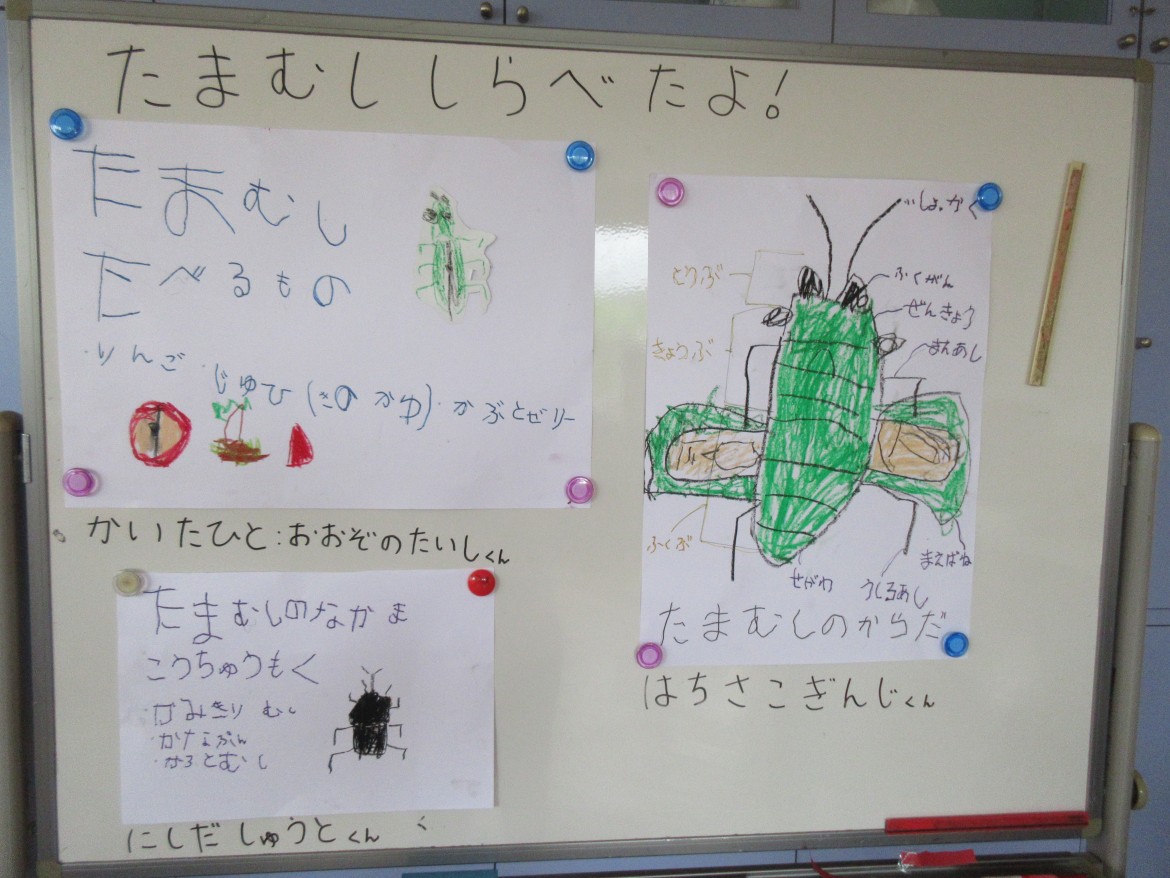 たまむししらべたよ!
たまむし
たべるもの
・りんご ・じゅひ(きのかゆ)・かぶとゼリー
かいたひと:おおぞのたいしくん
たまむしのなかま
こうちゅうもく
・かみきりむし
・かなぶん
・かぶとむし
にしだしゅうとくん
しょっかく
とうぶ
ふくがん
ぜんきょう
きょうぶ
まえあし
ふくぶ
せなか
うしろあし
まえばね
たまむしのからだ
はちさこぎんじくん